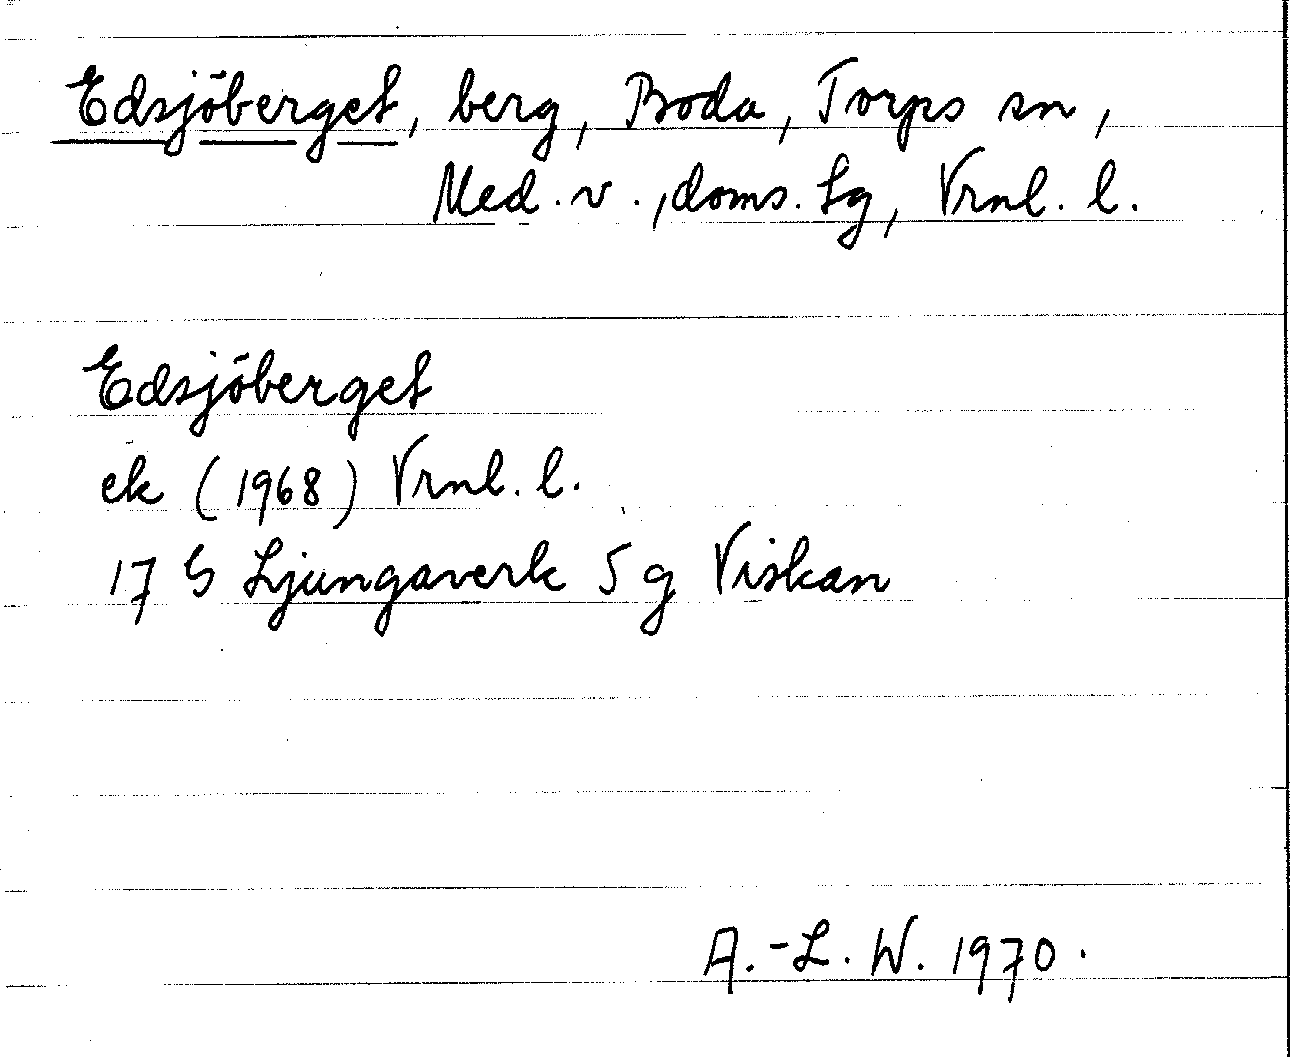 Edsjöberget, berg, Boda, Torps sn,
Med. v., doms. lg, Vrnl. l.
Edsjöberget
ek (1968) Vrnl. l.
17 G Ljungaverk 5 g Viskan
A.-L. W. 1970.